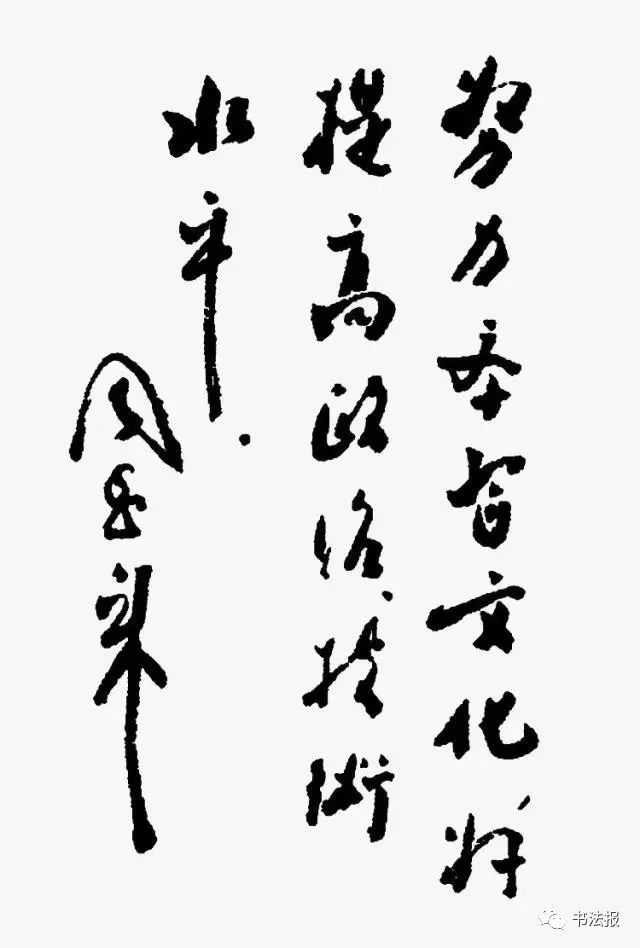 努力学習文化，并
提高政治、技術
水平．
周恩来
书法报